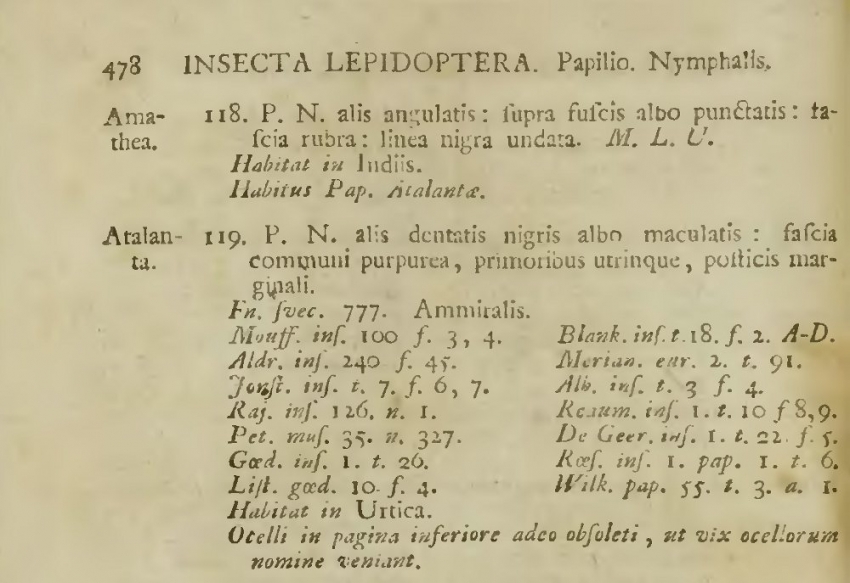 478 INSECTA LEPIDOPTERA. Papilio. Nymphalis.
Ama- 118. P. N. alis angulatis : ſupra fuſcis albo punctatis : fa-
thea. ſcia rubra : linea nigra undata. M. L. U.
Habitat in Indiis.
Habitus Pap. Atalantæ.
Atalan- 119. P. N. alis dentatis nigris albo maculatis : faſcia
ta. communi purpurea, primoribus utrinque, poſticis mar-
ginali.
Fn. ſvec. 777. Ammiralis.
Mouff. inſ. 100 f. 3, 4. Blank. inſ. t. 18. f. 2. A-D.
Aldr. inſ. 240 f. 45. Merian. eur. 2. t. 91.
Jonſt. inſ. t. 7. f. 6, 7. Alb. inſ. t. 3 f. 4.
Raj. inſ. 126. n. 1. Reaum. inſ. 1. t. 10 f 8, 9.
Pet. muſ. 35. n. 327. De Geer. inſ. 1. t. 22. f. 5.
Gœd. inſ. 1. t. 26. Rœſ. inſ. 1. pap. 1. t. 6.
Liſt. gœd. 10. f. 4. Wilk. pap. 55. t. 3. a. 1.
Habitat in Urtica.
Ocelli in pagina inferiore adeo obſoleti, ut vix ocellorum
nomine veniant.